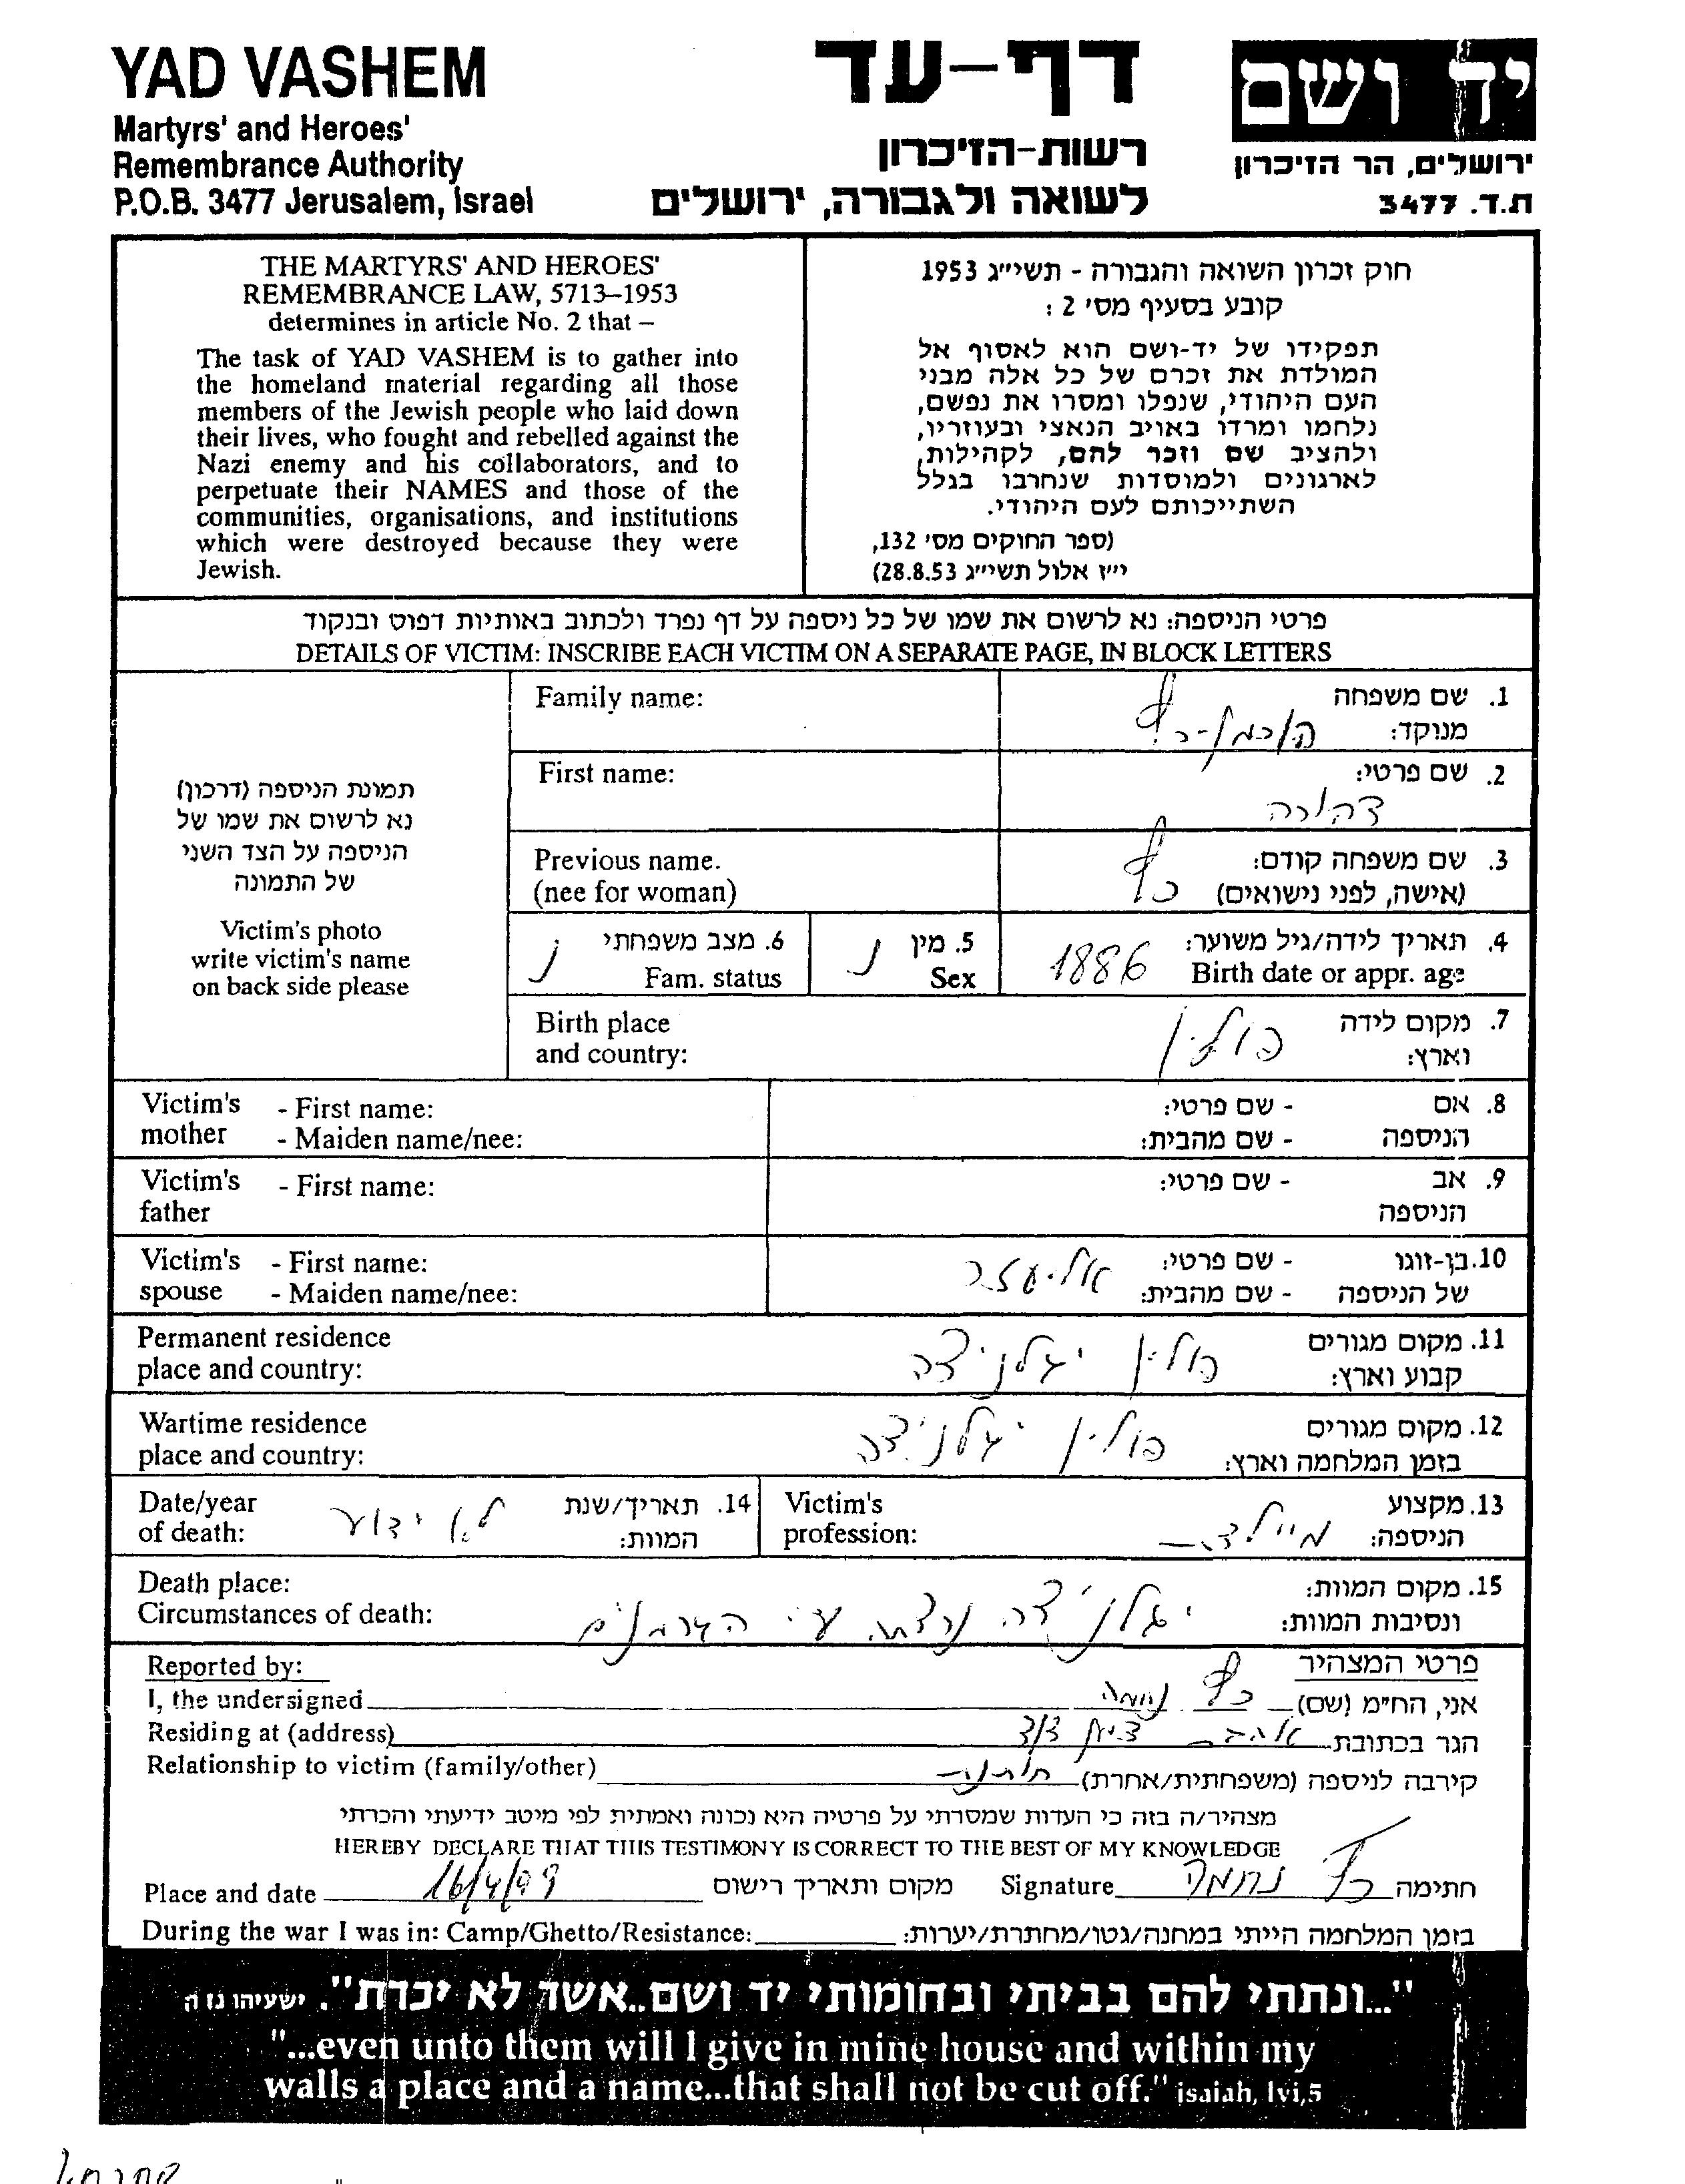 YAD VASHEM
Martyrs' and Heroes'
Remembrance Authority
P.O.B. 3477 Jerusalem, Israel
דף-עד
רשות-הזיכרון
לשואה ולגבורה, ירושלים
יד ושם
ירושלים, הר הזיכרון
ת.ד. 3477
THE MARTYRS' AND HEROES'
REMEMBRANCE LAW, 5713–1953
determines in article No. 2 that –
The task of YAD VASHEM is to gather into
the homeland material regarding all those
members of the Jewish people who laid down
their lives, who fought and rebelled against the
Nazi enemy and his collaborators, and to
perpetuate their NAMES and those of the
communities, organisations, and institutions
which were destroyed because they were
Jewish.
חוק זכרון השואה והגבורה - תשי״ג 1953
קובע בסעיף מס׳ 2 :
תפקידו של יד-ושם הוא לאסוף אל
המולדת את זכרם של כל אלה מבני
העם היהודי, שנפלו ומסרו את נפשם,
נלחמו ומרדו באויב הנאצי ובעוזריו,
ולהציב שם וזכר להם, לקהילות,
לארגונים ולמוסדות שנחרבו בגלל
השתייכותם לעם היהודי.
(ספר החוקים מס׳ 132,
י״ז אלול תשי״ג 28.8.53)
פרטי הניספה: נא לרשום את שמו של כל ניספה על דף נפרד ולכתוב באותיות דפוס ובנקוד
DETAILS OF VICTIM: INSCRIBE EACH VICTIM ON A SEPARATE PAGE, IN BLOCK LETTERS
תמונת הניספה (דרכון)
נא לרשום את שמו של
הניספה על הצד השני
של התמונה
Victim's photo
write victim's name
on back side please
Family name:
1. שם משפחה
מנוקד:
First name:
2. שם פרטי:
Previous name.
(nee for woman)
3. שם משפחה קודם:
(אישה, לפני נישואים) כץ
4. תאריך לידה/גיל משוער:
Birth date or appr. age 1886
5. מין נ
Sex
6. מצב משפחתי נ
Fam. status
Birth place
and country:
7. מקום לידה
וארץ: פולין
Victim's mother - First name:
- Maiden name/nee:
8. אם - שם פרטי:
הניספה - שם מהבית:
Victim's father - First name:
9. אב - שם פרטי:
הניספה
Victim's spouse - First name:
- Maiden name/nee:
10. בן-זוגו - שם פרטי: אליעזר
של הניספה - שם מהבית:
Permanent residence
place and country:
11. מקום מגורים
קבוע וארץ: פולין יגלניצה
Wartime residence
place and country:
12. מקום מגורים
בזמן המלחמה וארץ: פולין יגלניצה
Date/year
of death:
14. תאריך/שנת
המוות: לא ידוע
Victim's
profession:
13. מקצוע
הניספה: מיילדת
Death place:
Circumstances of death:
15. מקום המוות:
ונסיבות המוות: יגלניצה נרצחה ע״י הגרמנים
Reported by:
פרטי המצהיר
I, the undersigned
אני, החי״מ (שם) כץ נחמה
Residing at (address)
הגר בכתובת
Relationship to victim (family/other)
קירבה לניספה (משפחתית/אחרת)
מצהיר/ה בזה כי העדות שמסרתי על פרטיה היא נכונה ואמתית לפי מיטב ידיעתי והכרתי
HEREBY DECLARE THAT THIS TESTIMONY IS CORRECT TO THE BEST OF MY KNOWLEDGE
Place and date 16/4/99 מקום ותאריך רישום Signature כץ נחמה חתימה
During the war I was in: Camp/Ghetto/Resistance: בזמן המלחמה הייתי במחנה/גטו/מחתרת/יערות:
"...ונתתי להם בביתי ובחומותי יד ושם..אשר לא יכרת". ישעיהו נו ה
"...even unto them will I give in mine house and within my
walls a place and a name...that shall not be cut off." isaiah, lvi,5